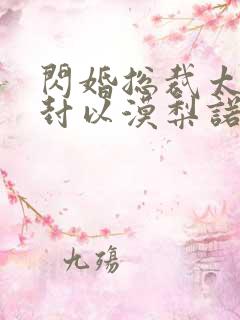 閃婚總裁太
封以漠梨諾
九殤